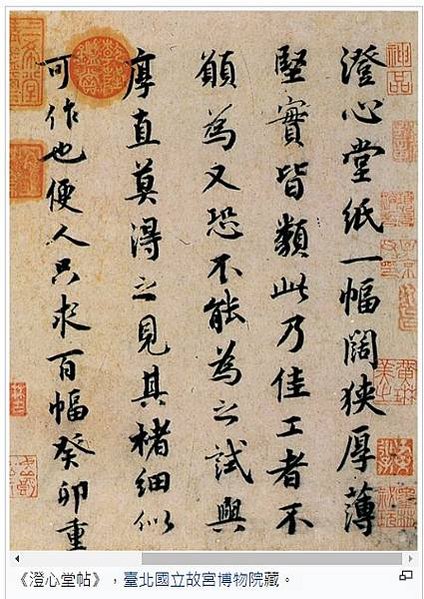 澄心堂紙一幅闊狹厚薄
堅實皆類此乃佳工者不
願為又恐不能為之試與
厚直莫得之見其楮細似
可作也便人只求百幅癸卯重
神品
《澄心堂帖》，臺北國立故宮博物院藏。